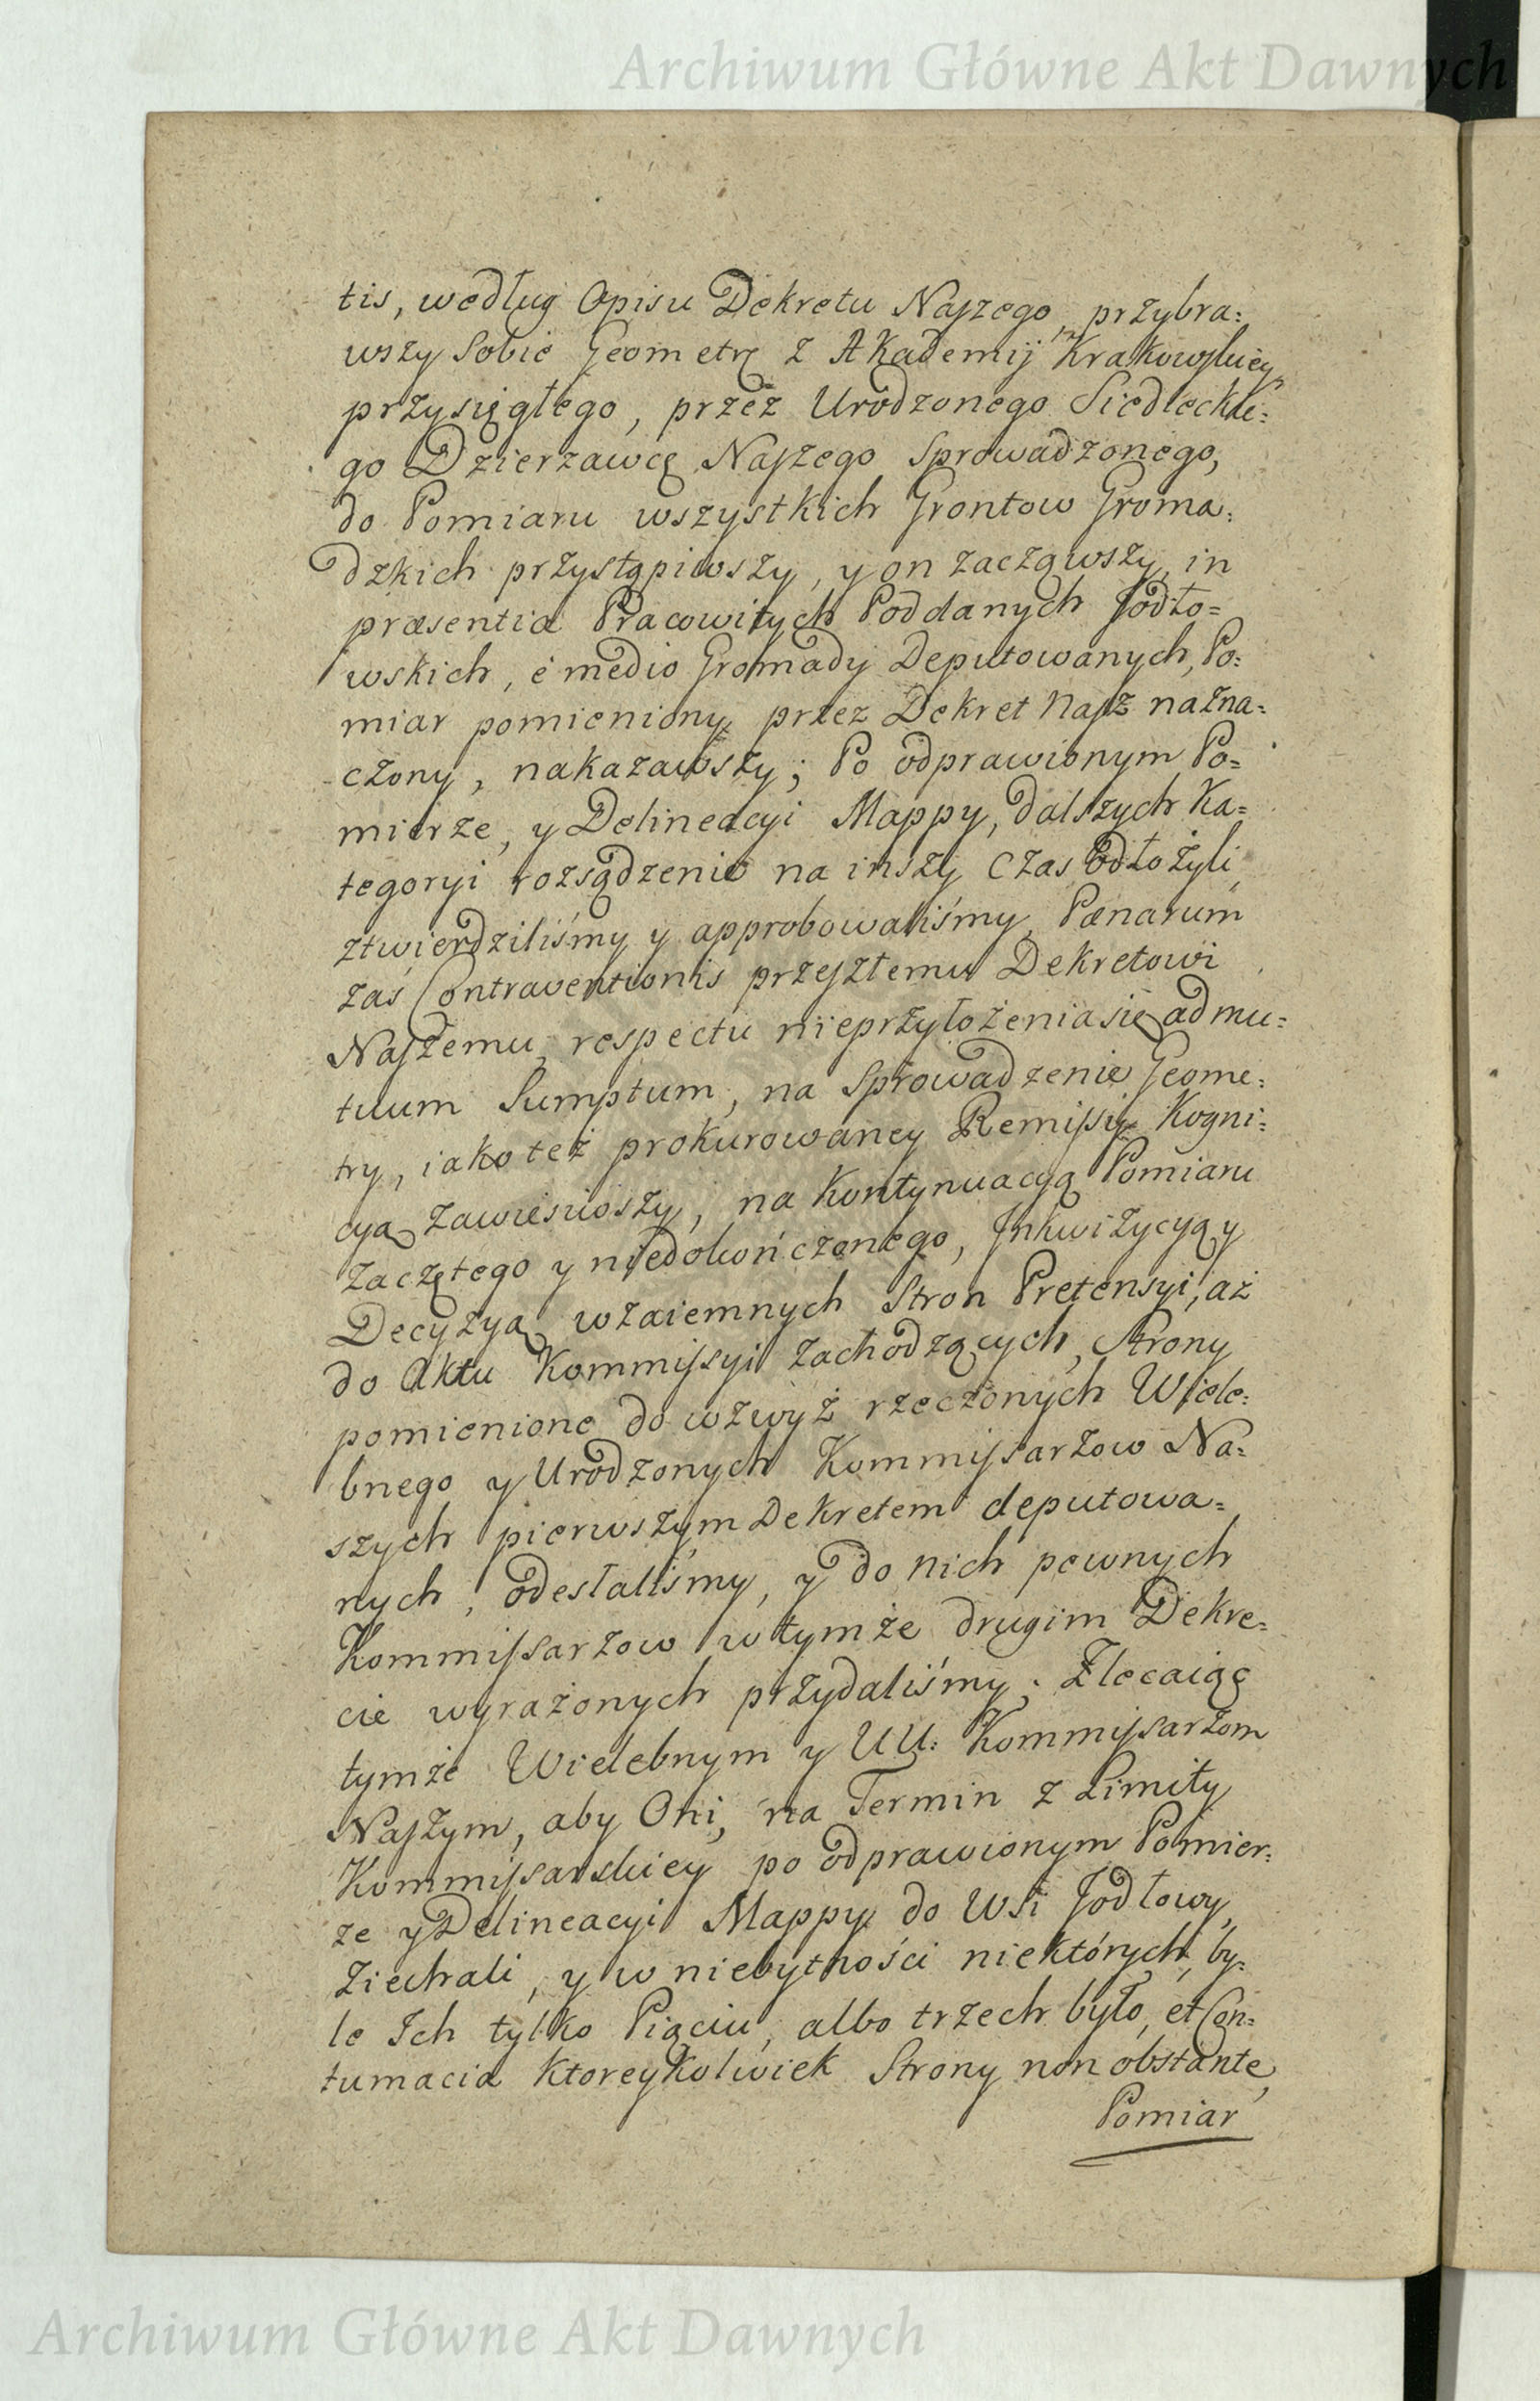 Archiwum Główne Akt Dawnych
tis, według Opisu Dekretu Naszego, przybra:
wszy Sobie Geometrę z Akademij Krakowskiey
przysięgłego, przez Urodzonego Siedleckie:
go Dzierzawcę Naszego Sprowadzonego,
do Pomiaru wszystkich Grontow Groma:
dzkich przystąpiwszy, y on zacząwszy, in
præsentia Pracowitych Poddanych Jodło=
wskich, é medio Gromady Deputowanych, Po:
miar pomieniony przez Dekret Nasz nazna:
czony, nakazawszy; Po odprawionym Po=
mierze, y Delineacyi Mappy, dalszych Ka=
tegoryi rozsądzenie na inszy Czas odłożyli,
ztwierdziliśmy y approbowaliśmy, Pænarum
zaś Contraventionis przesztemu Dekretowi
Naszemu, respectu nieprzyłożenia się ad mu:
tuum Sumptum, na Sprowadzenie Geome:
try, iako też prokurowaney Remissij Kogni:
cyą zawiesiwszy, na Kontynuacyą Pomiaru
zaczętego y niedokończonego, Jnkwizycyą y
Decyzyą wzaiemnych Stron Pretensyi, aż
do Aktu Kommissyi zachodzących, Strony
pomienione do wzwyż rzeczonych Wiele:
bnego y Urodzonych Kommissarzow Na=
szych pierwszym Dekretem deputowa=
nych, odesłaliśmy, y do nich pewnych
Kommissarzow w tymże drugim Dekre=
cie wyrażonych przydaliśmy; Zlecaiąc
tymże Wielebnym y UU: Kommissarzom
Naszym, aby Oni, na Termin z Limity
Kommissarskiey po odprawionym Pomier:
ze y Delineacyi Mappy do Wsi Jodłowy,
Ziechali, y w niebytności niektórych, by:
le Ich tylko Pięciu, albo trzech było, et Con:
tumacia Ktoreykolwiek Strony non obstante,
Pomiar
Archiwum Główne Akt Dawnych